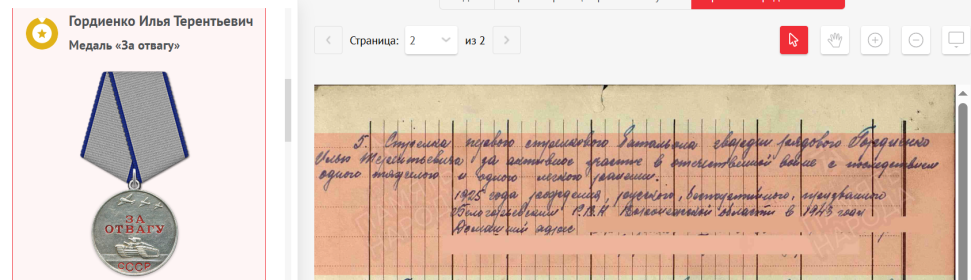 Гордиенко Илья Терентьевич
Медаль «За отвагу»
ЗА
ОТВАГУ
СССР
Страница: 2 из 2
5. Стрелка первого стрелкового батальона гвардии рядового Гордиенко
Илью Терентьевича за активное участие в отечественной войне с последствием
одного тяжелого и одного легкого ранения.
1925 года рождения, русского, беспартийного, призванного
Р.В.К. области в 1943 году
Домашний адрес